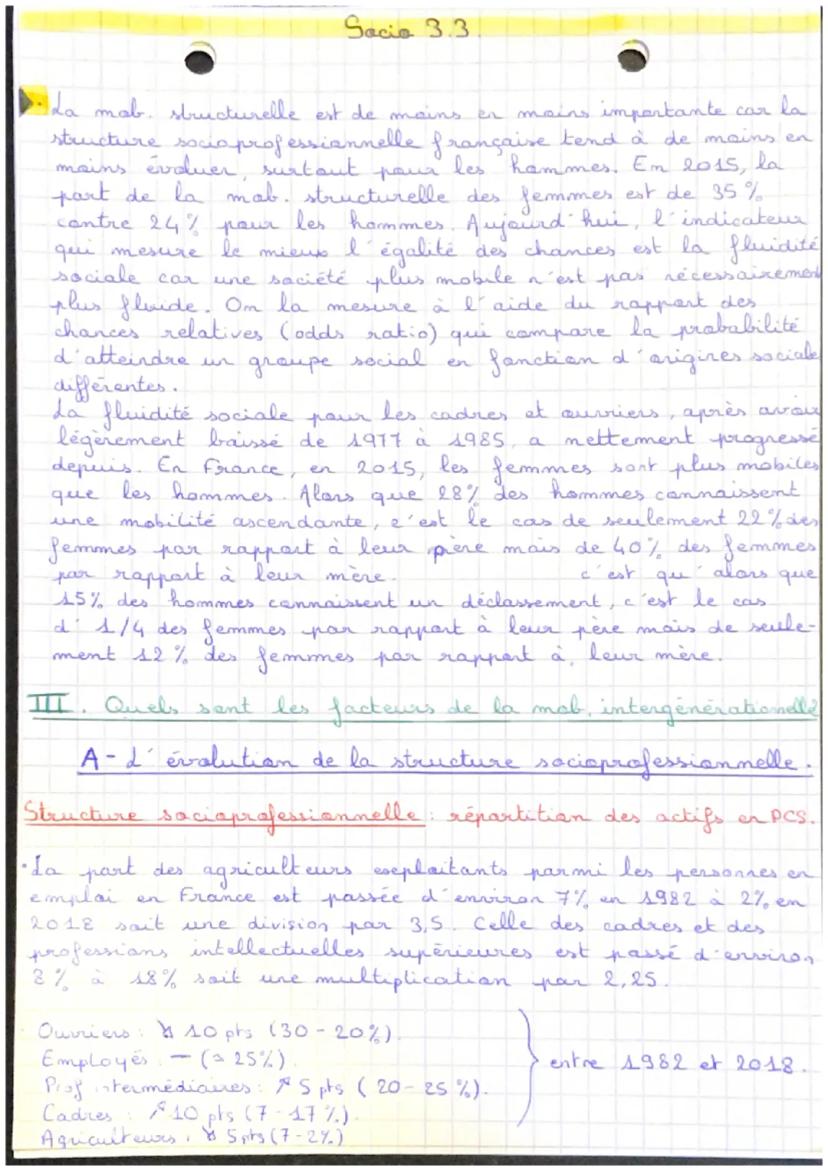 Socio 3.3.
La mob. structurelle est de moins en moins importante car la
structure socioprofessionnelle française tend à de moins en
moins évoluer, surtout pour les hommes. En 2015, la
part de la mob. structurelle des femmes est de 35 %
contre 24% pour les hommes. Aujourd'hui, l'indicateur
qui mesure le mieux l'égalité des chances est la fluidité
sociale car une société plus mobile n'est pas nécessairement
plus fluide. On la mesure à l'aide du rapport des
chances relatives (odds ratio) qui compare la probabilité
d'atteindre un groupe social en fonction d'origines sociale
différentes.
La fluidité sociale pour les cadres et ouvriers, après avoir
légèrement baissé de 1977 à 1985, a nettement progressé
depuis. En France, en 2015, les femmes sont plus mobiles
que les hommes. Alors que 28% des hommes connaissent
une mobilité ascendante, c'est le cas de seulement 22% des
femmes par rapport à leur père mais de 40% des femmes
par rapport à leur mère. c'est qu'alors que
15% des hommes connaissent un déclassement, c'est le cas
d'1/4 des femmes par rapport à leur père mais de seule-
ment 12% des femmes par rapport à leur mère.
III. Quels sont les facteurs de la mob. intergénérationnelle?
A- L'évolution de la structure socioprofessionnelle.
Structure socioprofessionnelle : répartition des actifs en PCS.
• La part des agriculteurs exploitants parmi les personnes en
emploi en France est passée d'environ 7% en 1982 à 2% en
2018 soit une division par 3,5. Celle des cadres et des
professions intellectuelles supérieures est passé d'environ
8% à 18% soit une multiplication par 2,25.
Ouvriers : ↘ 10 pts (30 - 20%).
Employés : — (≃ 25%).
Prof intermédiaires : ↗ 5 pts (20 - 25%).
Cadres : ↗ 10 pts (7 - 17%).
Agriculteurs : ↘ 5 pts (7 - 2%)
entre 1982 et 2018.